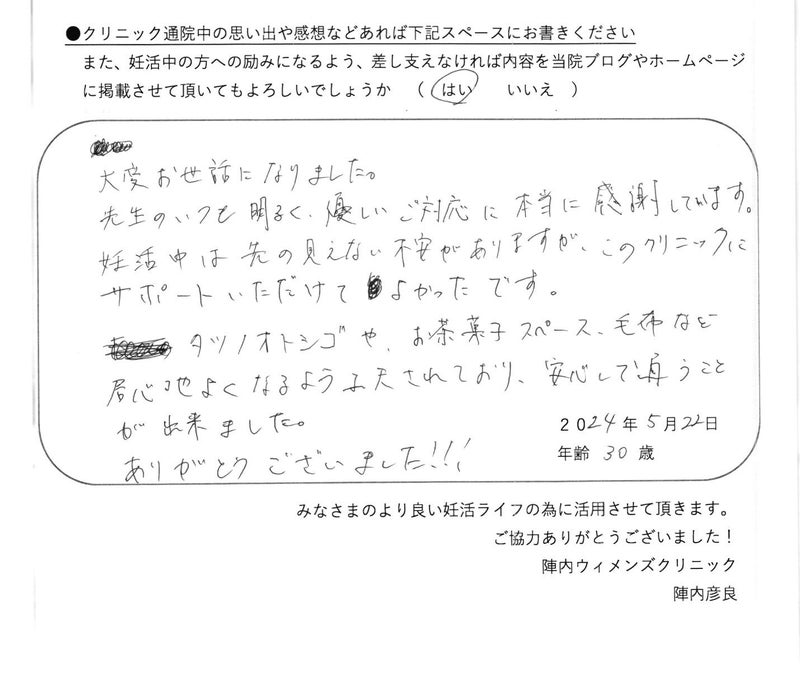 ●クリニック通院中の思い出や感想などあれば下記スペースにお書きください
また、妊活中の方への励みになるよう、差し支えなければ内容を当院ブログやホームページ
に掲載させて頂いてもよろしいでしょうか （ はい いいえ ）
大変お世話になりました。
先生のいつも明るく、優しいご対応に本当に感謝しています。
妊活中は先の見えない不安がありますが、このクリニックに
サポートいただけてよかったです。
タツノオトシゴや、お茶菓子スペース、毛布など
居心地よくなるよう工夫されており、安心して通うこと
が出来ました。
ありがとうございました!!!
2024年5月22日
年齢 30 歳
みなさまのより良い妊活ライフの為に活用させて頂きます。
ご協力ありがとうございました！
陣内ウィメンズクリニック
陣内彦良